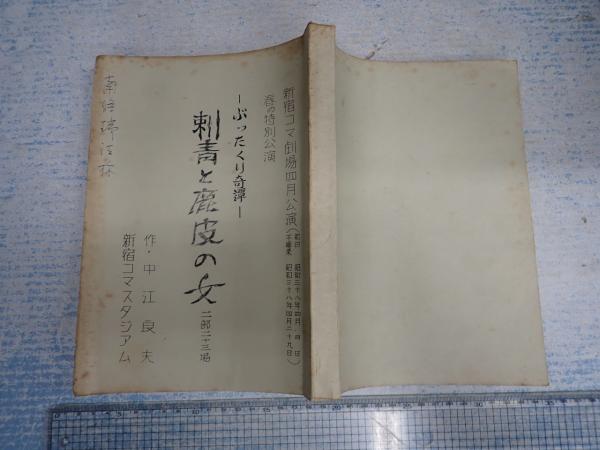 新宿コマ劇場四月公演(初日 昭和三十八年四月一日
千穐楽 昭和三十八年四月二十九日)
春の特別公演
―ぶったくり奇譚―
刺青と鹿皮の女 二部二十三場
作・中江良夫
新宿コマスタジアム